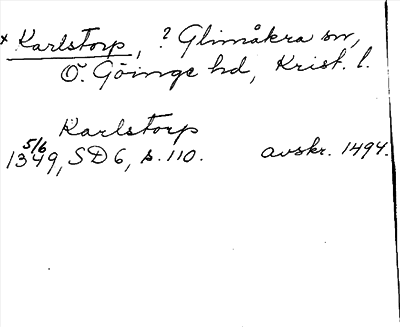 * Karlstorp, ? Glimåkra sn,
Ö. Göinge hd, Krist. l.
Karlstorp
5/6
1349, SD 6, s. 110. avskr. 1494.